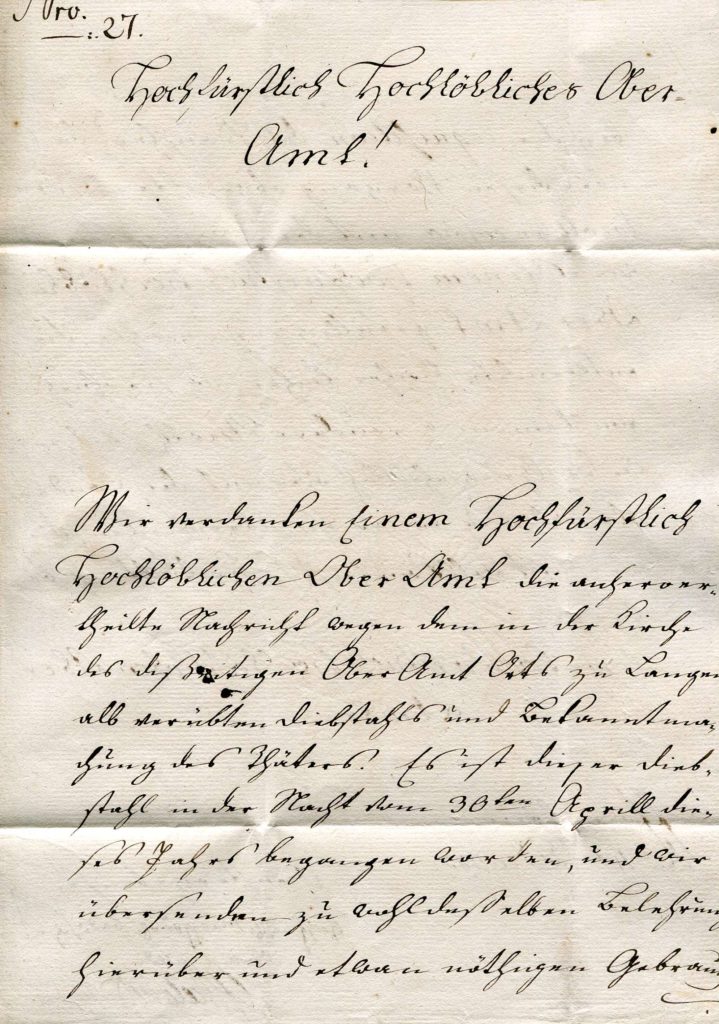 Nro.
27.
Hochfürstlich Hochlöbliches Ober-
Amt!
Wir verdanken Einem Hochfürstlich
Hochlöblichen Ober Amt die anhero er-
theilte Nachricht wegen dem in der Kirche
des dißeitigen Ober Amt Orts zu Langen
alb verübten Diebstahls und Bekanntma-
chung des Thäters. Es ist dieser Dieb-
stahl in der Nacht vom 30ten Aprill die-
ses Jahrs begangen worden, und wir
übersenden zu wohldesselben Belehrung
hierüber und etwan nöthigen Gebrauch